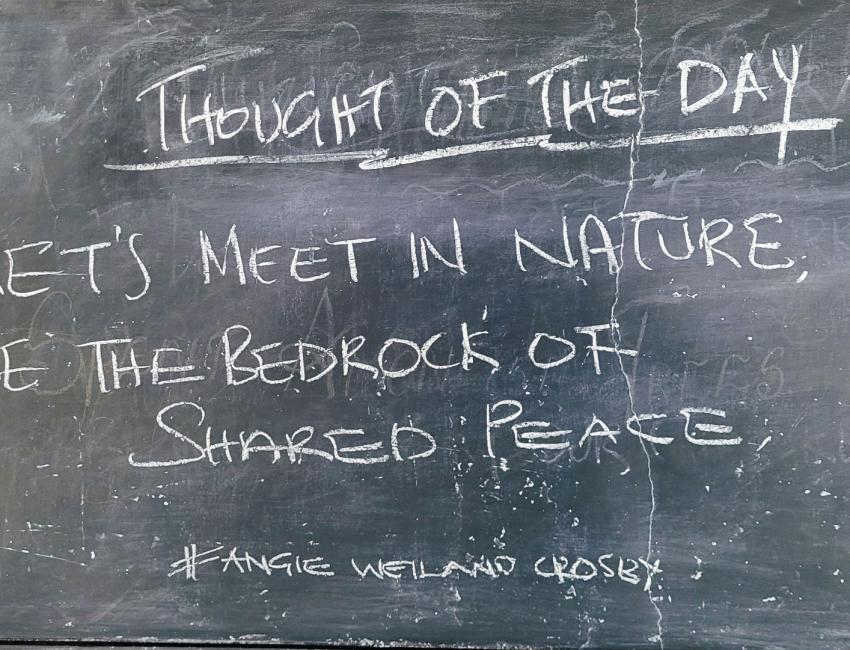 THOUGHT OF THE DAY
LET'S MEET IN NATURE,
E THE BEDROCK OF
SHARED PEACE,
#ANGIE WEILAND CROSBY